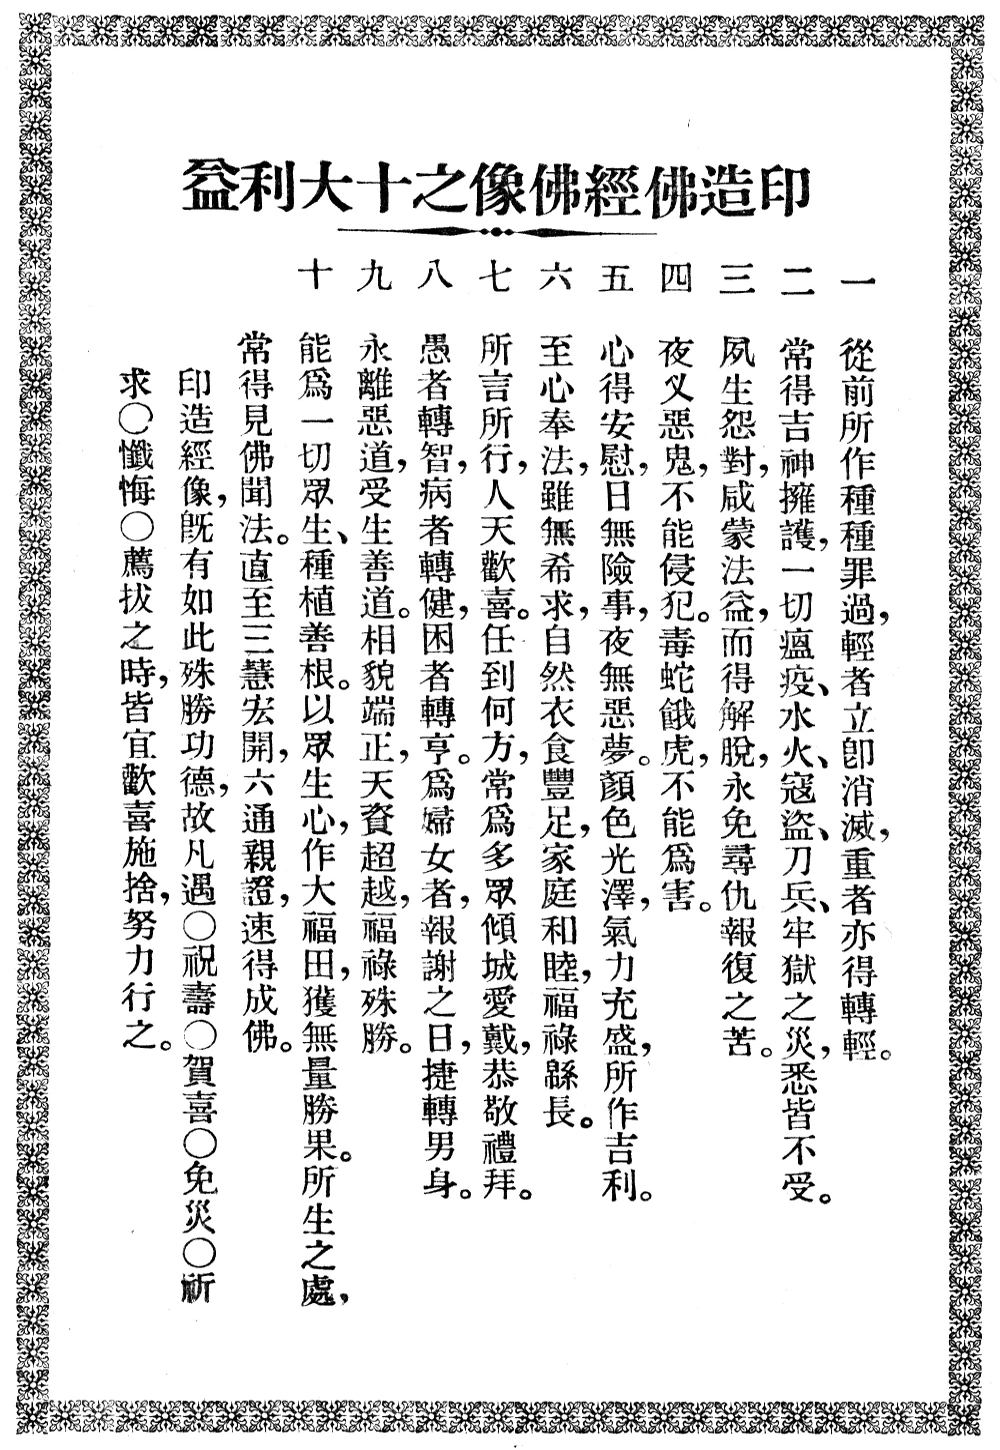 印造佛經佛像之十大利益
一 從前所作種種罪過，輕者立卽消滅，重者亦得轉輕。
二 常得吉神擁護，一切瘟疫、水火、寇盜、刀兵、牢獄之災，悉皆不受。
三 夙生怨對，咸蒙法益，而得解脫，永免尋仇報復之苦。
四 夜叉惡鬼，不能侵犯。毒蛇餓虎，不能爲害。
五 心得安慰，日無險事，夜無惡夢。顏色光澤，氣力充盛，所作吉利。
六 至心奉法，雖無希求，自然衣食豐足，家庭和睦，福祿緜長。
七 所言所行，人天歡喜。任到何方，常爲多眾傾城愛戴，恭敬禮拜。
八 愚者轉智，病者轉健，困者轉亨。爲婦女者，報謝之日，捷轉男身。
九 永離惡道，受生善道。相貌端正，天資超越，福祿殊勝。
十 能爲一切眾生、種植善根。以眾生心，作大福田，獲無量勝果。所生之處，
常得見佛聞法。直至三慧宏開，六通親證，速得成佛。
印造經像，旣有如此殊勝功德，故凡遇○祝壽○賀喜○免災○祈
求○懺悔○薦拔之時，皆宜歡喜施捨，努力行之。